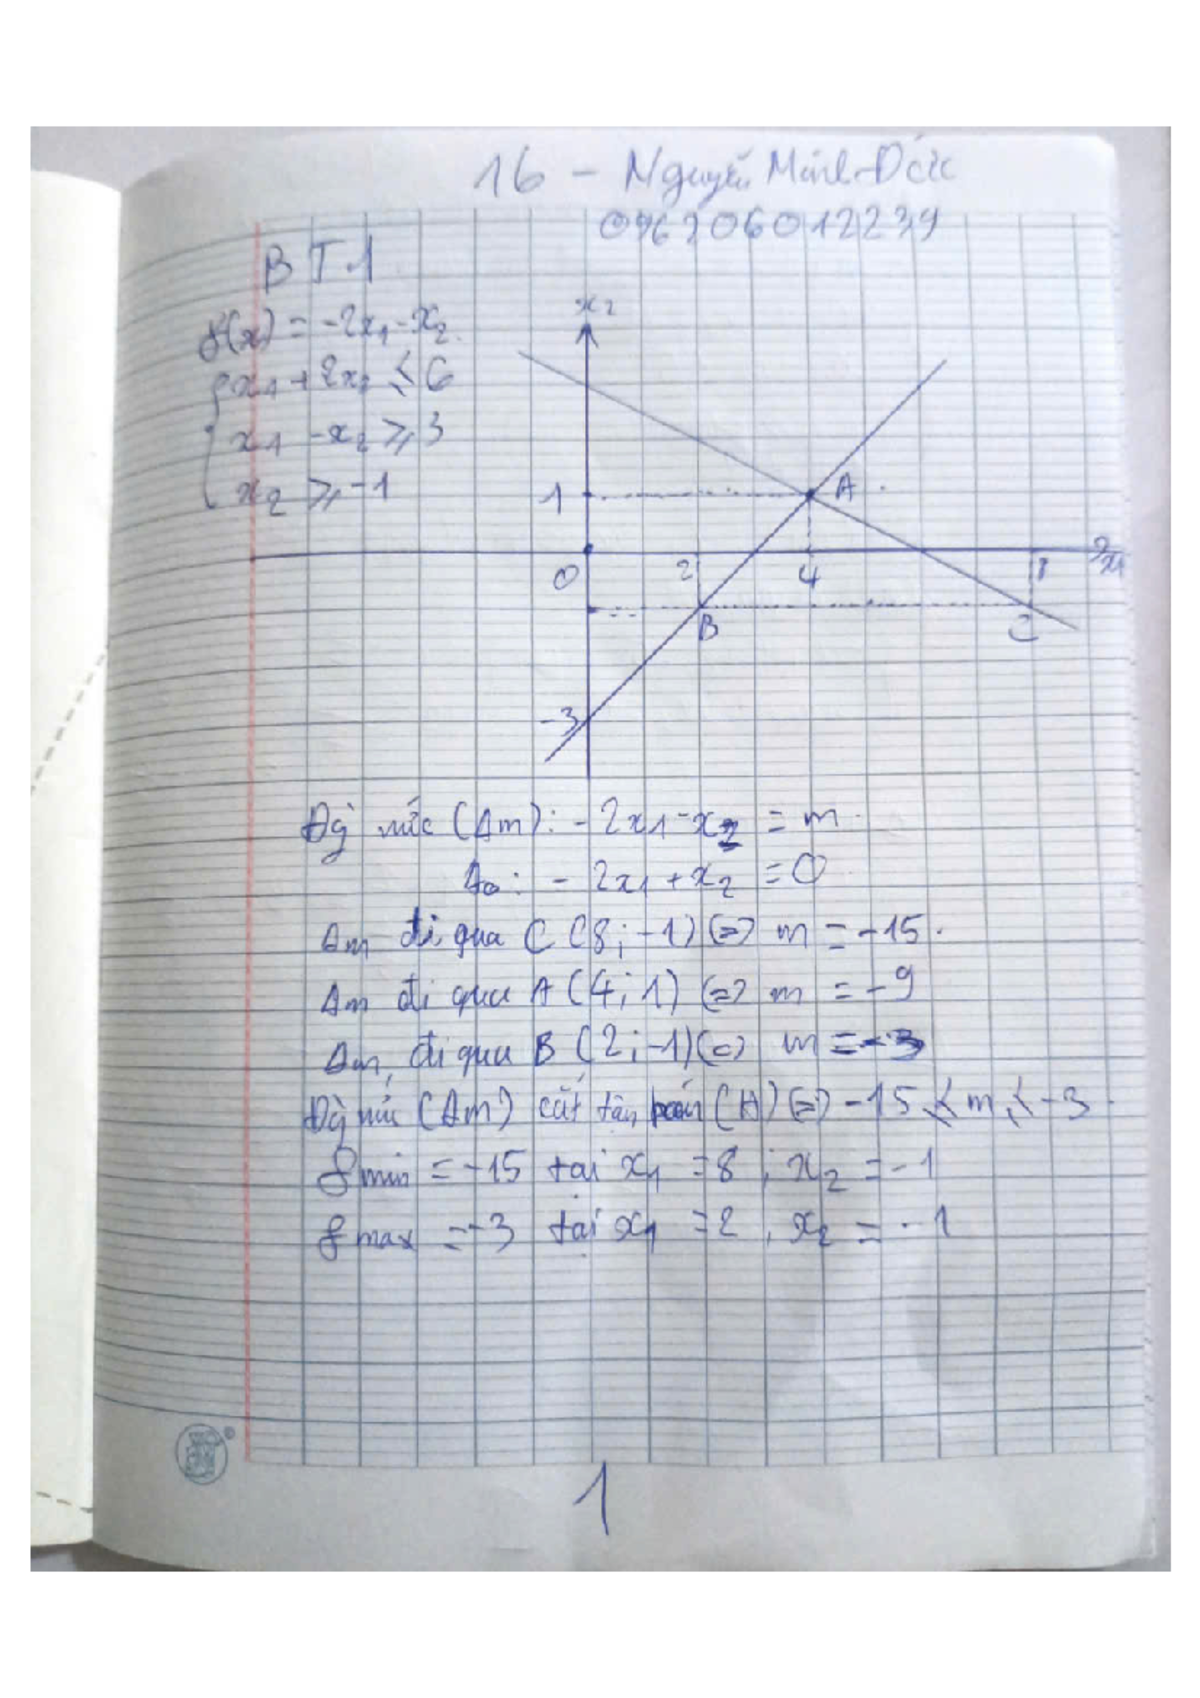 16 - Nguyễn Minh Đức
096206012239
BT1
f(x) = -2x₁ - x₂
x₁ + 2x₂ ≤ 6
x₁ - x₂ ≥ 3
x₂ ≥ -1
x₂
1
A
O
2
4
8
x₁
B
C
-3
Đg mức (Δm): -2x₁ - x₂ = m
Δ₀: -2x₁ + x₂ = 0
Δm đi qua C (8; -1) (=) m = -15.
Δm đi qua A (4; 1) (=) m = -9
Δm, đi qua B (2; -1) (=) m = -3
Đg mức (Δm) cắt (=) -15 ≤ m ≤ -3.
fmin = -15 tại x₁ = 8; x₂ = -1
fmax = -3 tại x₁ = 2, x₂ = -1
1